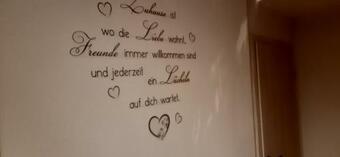 Zuhause ist
wo die Liebe wohnt,
Freunde immer willkommen sind
und jederzeit ein Lächeln
auf dich wartet.